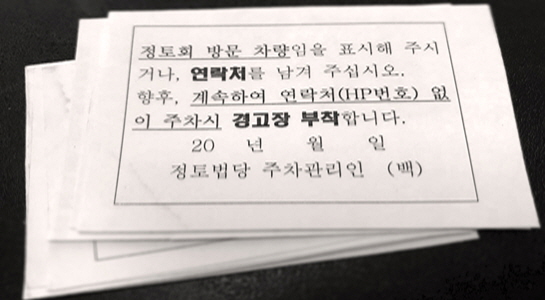 정토회 방문 차량임을 표시해 주시
거나, 연락처를 남겨 주십시오.
향후, 계속하여 연락처(HP번호) 없
이 주차시 경고장 부착합니다.
20 년 월 일
정토법당 주차관리인 (백)